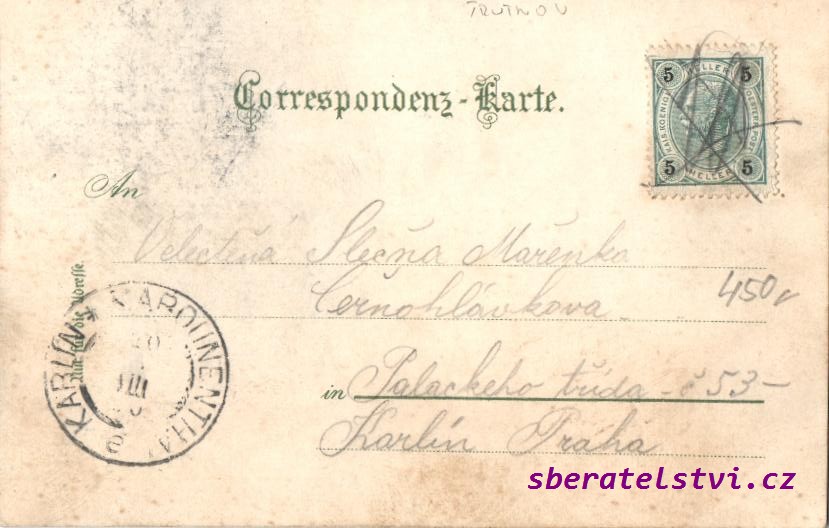 TRUTNOV
Correspondenz-Karte.
5 HELLER 5
KAIS. KOENIGL. OESTERR. POST.
5 HELLER 5
An
Velectěná Slečna Mařenka
Černohlávkova
450,-
Nur für die Adresse.
KARLÍN KAROLINENTHAL
III
in Palackého třída - č 53 -
Karlín Praha
sberatelstvi.cz